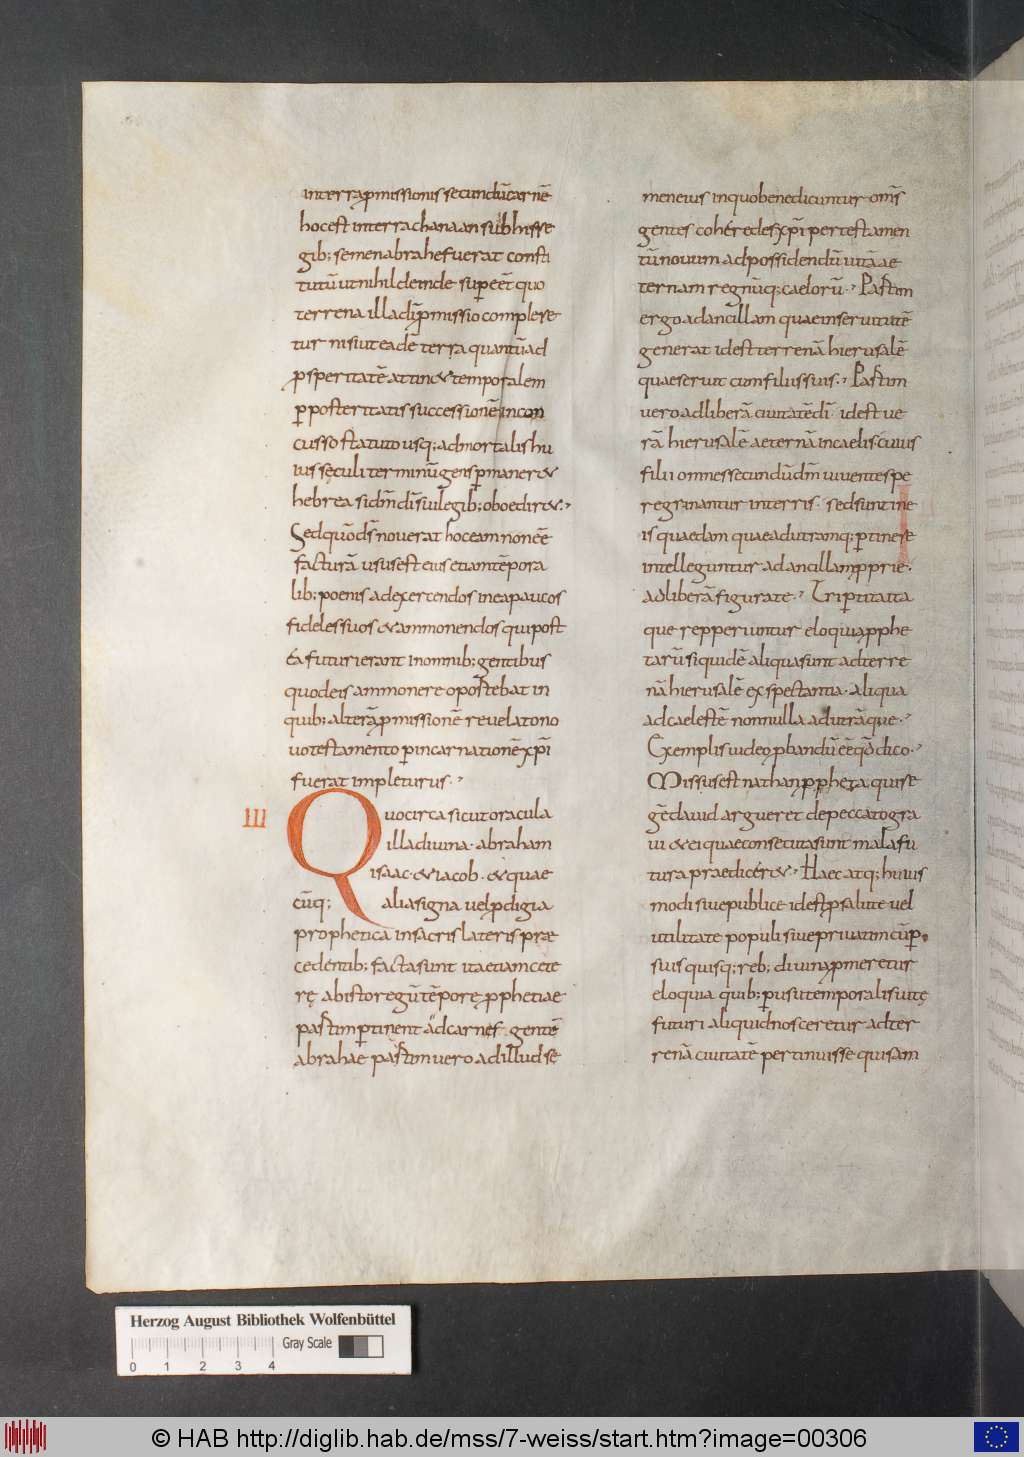 interrap̄missionis secundū carnē
hocest interra chanaan sub hisse
gib; semen abrahe fuerat consti
tutū ut nihil deinde supeeēt quo
terrena illa di p̄missio complere
tur nisi ut eadē terra quantū ad
p̄speritatē attin& temporalem
p̱ posteritatis successionē incon
cusso statuto usq; ad mortalis hu
ius sęculi terminū gens p̱maner&
hebrea si dn̄i dī sui legib; oboedir&.
Sed quō dſ nouerat hoc eam non eē
facturā usus est eius etiam tēpora
lib; poenis ad exercendos in ea paucos
fideles suos & ammonendos qui post
ea futuri erant in omnib; gentibus
quod eis ammonere oportebat in
quib; alterā p̄missionē reuelato no
uo testamento p̱ incarnationē xp̄i
fuerat impleturus.
III Quocirca sicut oracula
illa diuina. abraham
isaac. & iacob. & quae
cūq; alia signa uel p̄digia
prophetica in sacris lateris præ
cedentib; facta sunt ita etiam cete
rę ab isto regū tēporę p̄phetiae
partim p̱tinent ad carnes. gentē
abrahae partim uero ad illud se
men eius in quo benedicuntur om̄s
gentes coheredes xp̄i per testamen
tū nouum ad possidendū uitā ae
ternam regnūq; caelorū. Partim
ergo ad ancillam quae in seruitutē
generat id est terrenā hierusalē
quae seruit cum filiis suis. Partim
uero ad liberā ciuitatē dī id est ue
rā hierusalē aeternā in caelis cuius
filii omnes secundū dm̄ uiuentes pe
regrinantur in terris. sed sunt in e
is quaedam quae ad utramq; p̱tinere
intelleguntur ad ancillam p̄prie.
ad liberā figurate. Trip̱tita ita
que repperiuntur eloquia p̄phe
tarū siquidē aliqua sunt ad terre
nā hierusalē exspectantia. aliqua
ad caelestē nonnulla ad utrāque.
Exemplis uideo p̄bandū eē qd̄ dico.
Missus est nathan p̄pheta qui re
gē dauid argueret de peccato gra
ui & ei quae consecuta sunt mala fu
tura praedicer&. Haec atq; huius
modi siue publice id est p̄ salute uel
utilitate populi siue priuatim cū p̄
suis quisq; reb; diuina p̄meretur
eloquia quib; p̱ usu temporalis uitę
futuri aliquid nosceretur ad ter
renā ciuitatē pertinuisse quis am
Herzog August Bibliothek Wolfenbüttel
Gray Scale
0 1 2 3 4
© HAB http://diglib.hab.de/mss/7-weiss/start.htm?image=00306